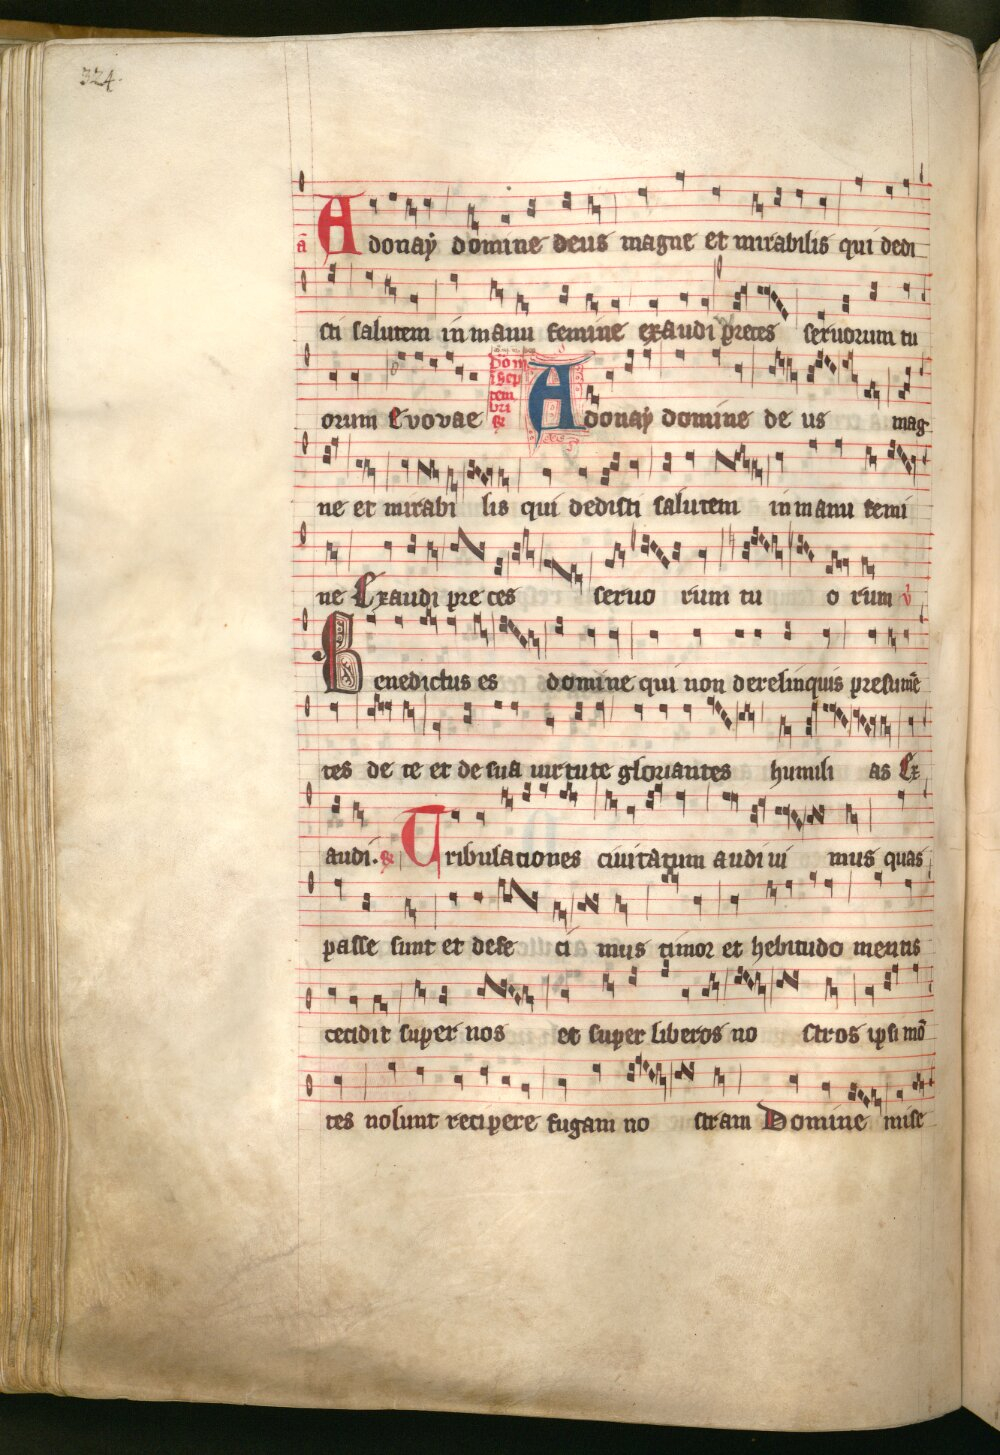 324.
a Adonaÿ domine deus magne et mirabilis qui dedi
sti salutem in manu femine exaudi preces seruorum tu
orum Evovae Adonaÿ domine de us mag
ne et mirabi lis qui dedisti salutem in manu femi
ne Exaudi pre ces seruo rum tu o rum v
Benedictus es domine qui non derelinquis presumē
tes de te et de sua uirtute gloriantes humili as Ex
audi. Tribulationes ciuitatum audiui mus quas
passe sunt et defe ci mus timor et hebitudo mentis
cecidit super nos et super liberos no stros ipsi mō
tes nolunt recipere fugam no stram Domine mise